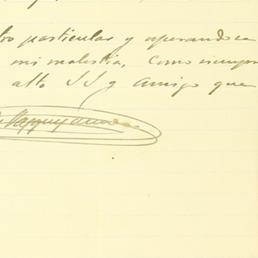 particular y esperando
mi molestia, como siempre
alto S S y amigo que